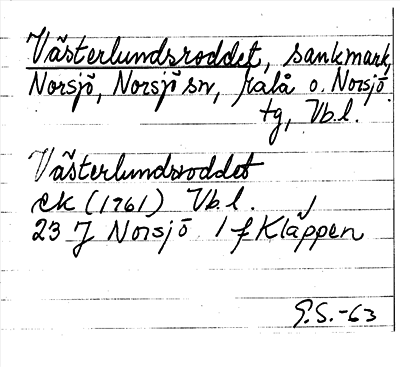 Västerlundsroddet, sankmark,
Norsjö, Norsjö sn, Malå o. Norsjö
tg, Vb.l.
Västerlundsroddet
ek (1961) Vb.l.
23 J Norsjö 1 f Kläppen
G.S.-63